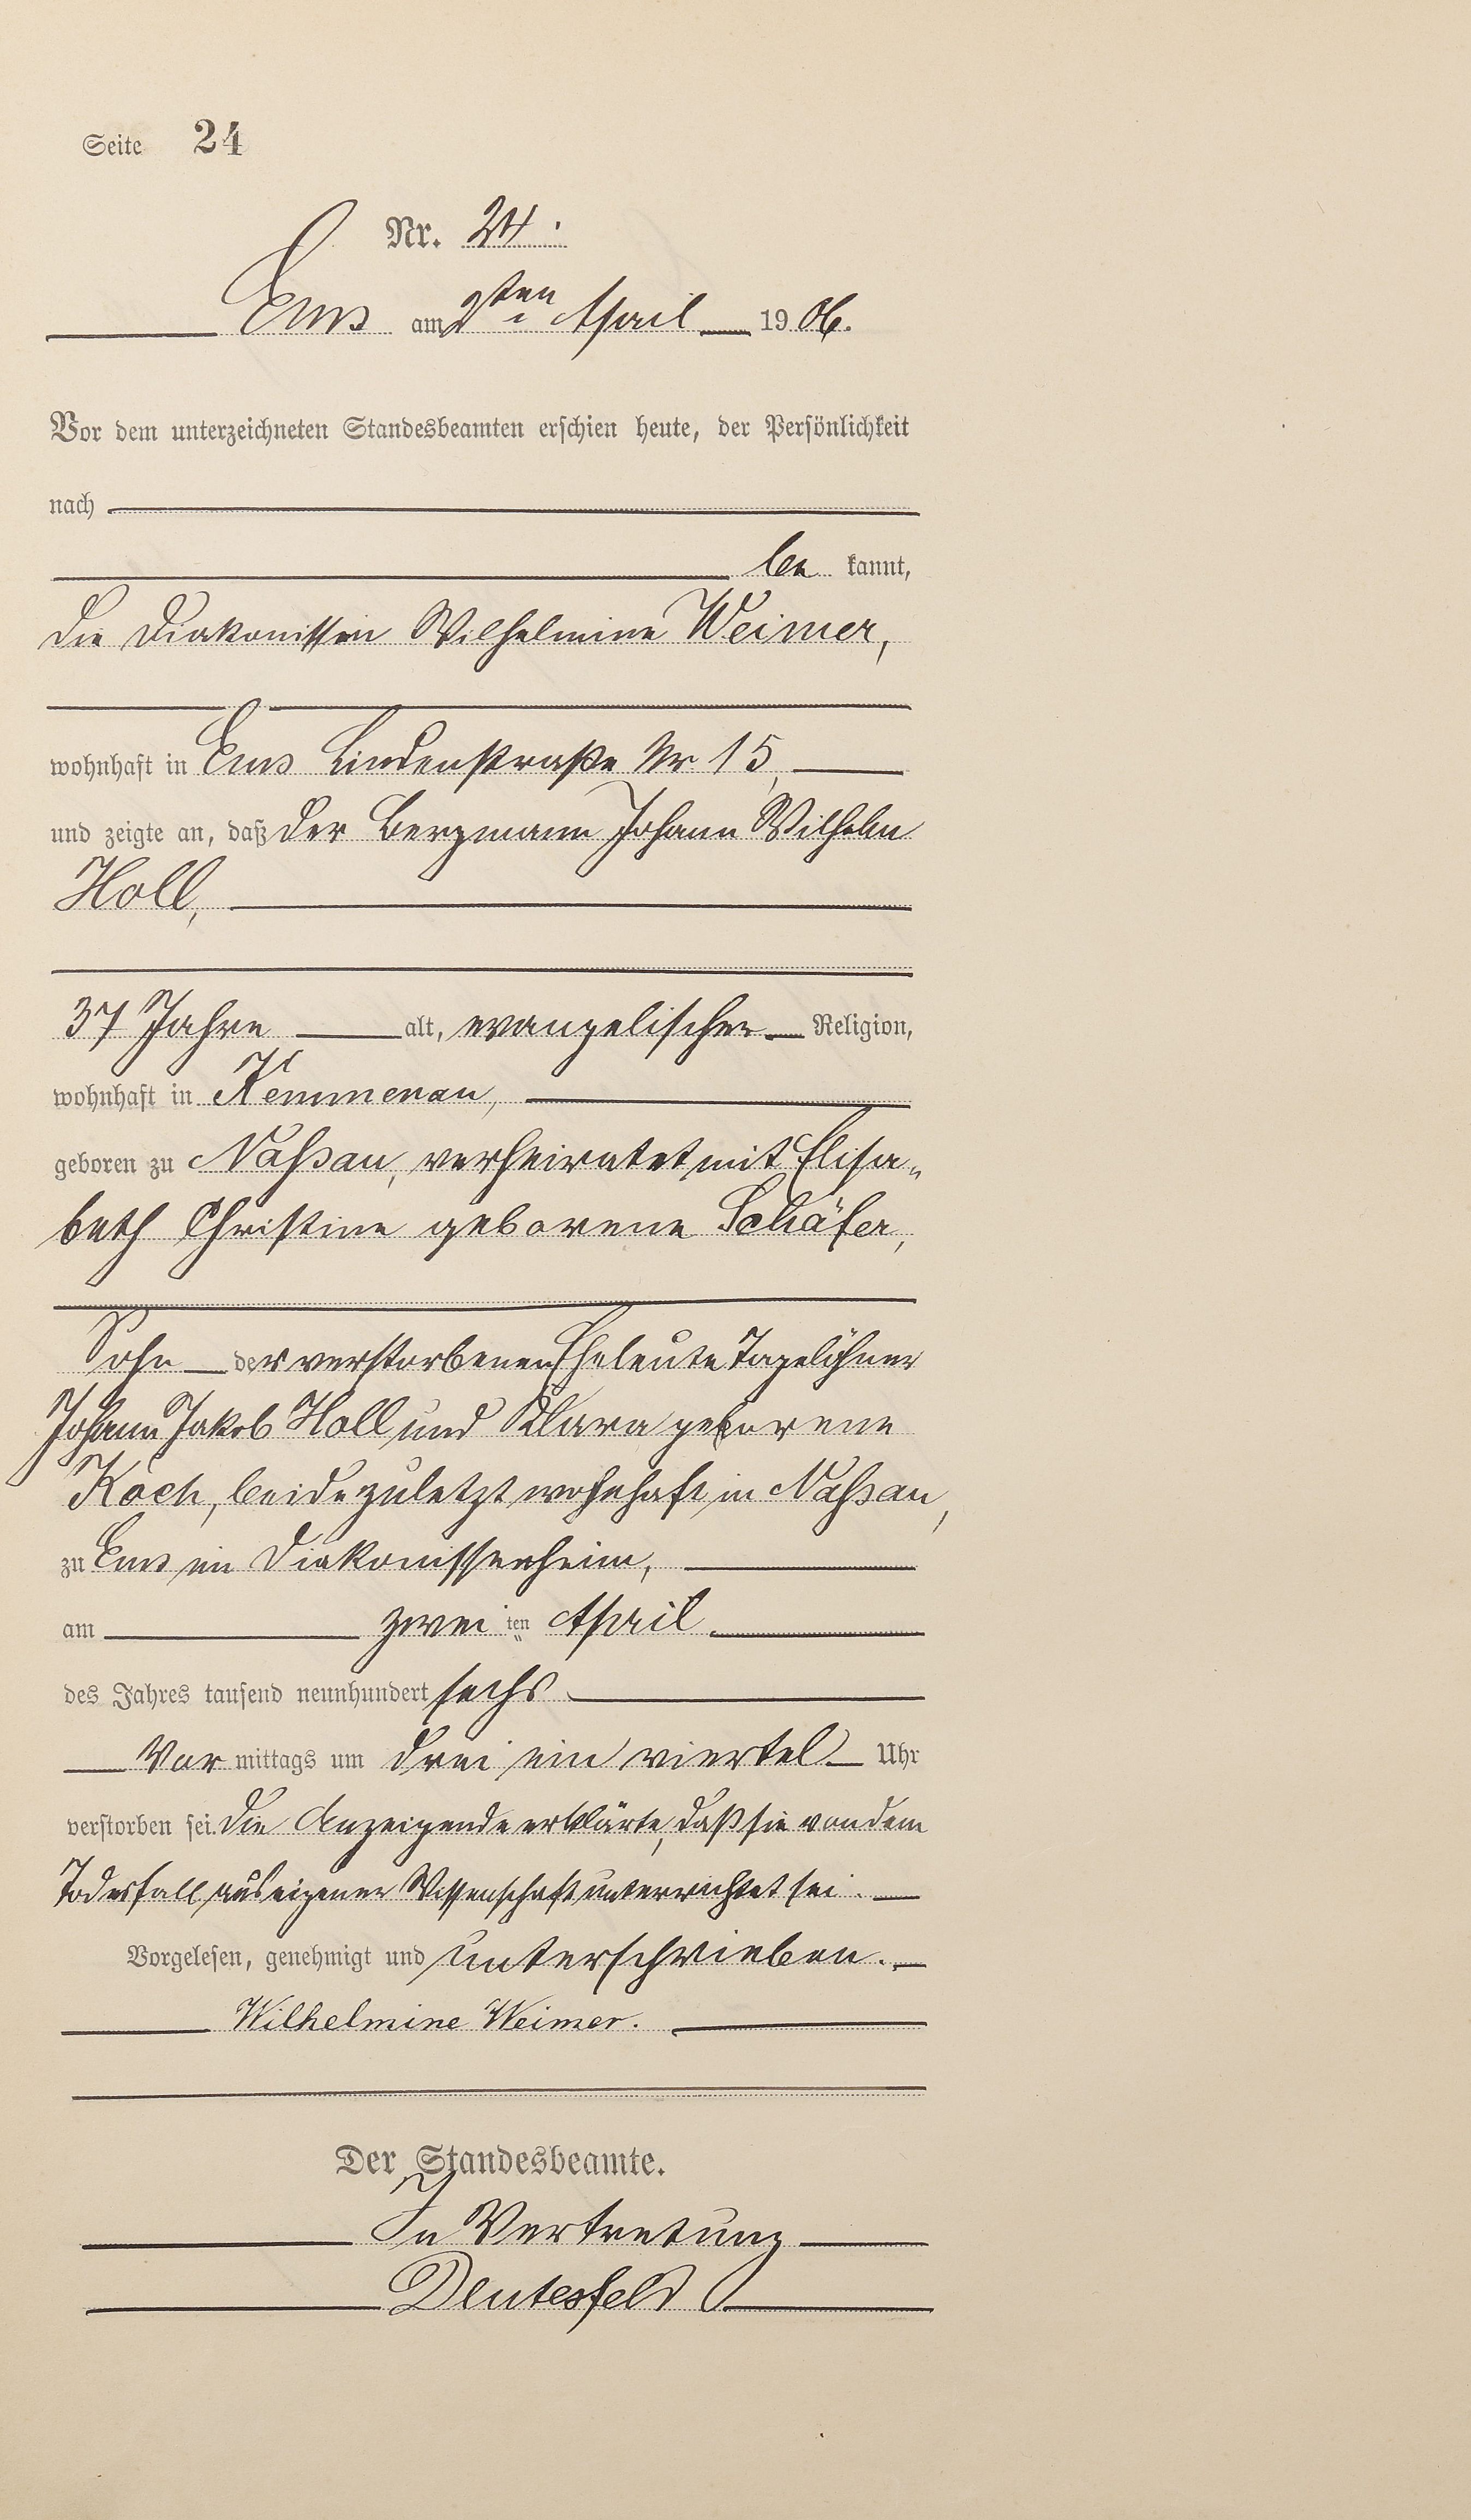 Seite 24
Nr. 24.
Ems am 2ten April 1906.
Vor dem unterzeichneten Standesbeamten erschien heute, der Persönlichkeit
nach
be kannt,
die Diakonissin Wilhelmine Weimer,
wohnhaft in Ems Lindenstraße Nr 15,
und zeigte an, daß der Bergmann Johann Wilhelm
Holl,
37 Jahre alt, evangelischer Religion,
wohnhaft in Kemmenau,
geboren zu Nassau, verheiratet mit Elisa-
beth Christine geborene Schäfer,
Sohn der verstorbenen Eheleute Tagelöhner
Johann Jakob Holl und Klara geborene
Koch, beide zuletzt wohnhaft in Nassau,
zu Ems im Diakonissenheim,
am zwei ten April
des Jahres tausend neunhundert sechs
Vor mittags um drei ein viertel Uhr
verstorben sei. Die Anzeigende erklärte, daß sie von dem
Todesfall aus eigener Wissenschaft unterrichtet sei.
Vorgelesen, genehmigt und unterschrieben.
Wilhelmine Weimer.
Der Standesbeamte.
In Vertretung